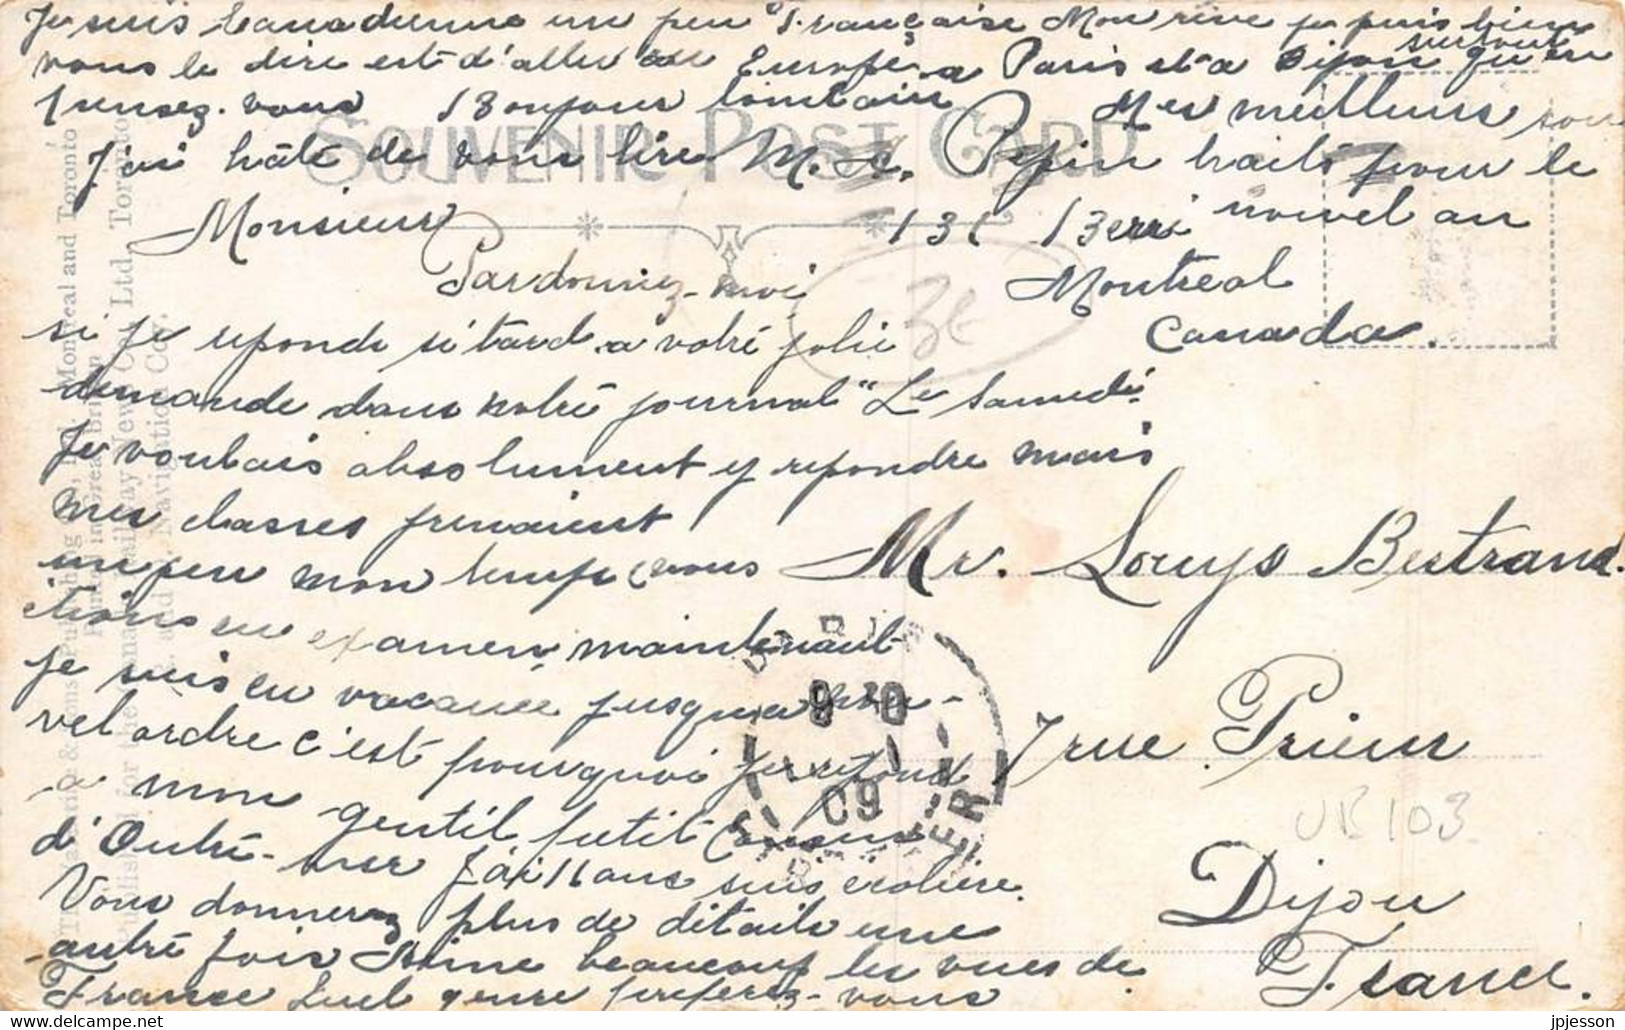 Je suis Canadienne un peu Française Mon rêve je puis bien
vous le dire est d'aller en Europe a Paris et a Dijon surtout qu'en
pensez-vous Bonjour lointain Mes meilleurs sou
SOUVENIR POST CARD
J'ai hâte de vous lire M. A. Pepin haits pour le
nouvel an
Monsieur 131 Berri
Pardonnez-moi Montreal
Canada.
si je reponds si tard a votre jolie
demande dans notre journal "Le Samedi"
Je voulais absolument y repondre mais
mes classes prenaient
un peu mon temps (nous
etions en examen, maintenant
je suis en vacance jusqu'a nou-
vel ordre c'est pourquoi je repond
a mon gentil petit Cousin
d'Outre-mer J'ai 11 ans suis ecoliere.
Vous donnerez plus de details une
autre fois J'aime beaucoup les vues de
France Quel genre preferez-vous
Mr. Louys Bertrand.
7 rue Prieur
Dijon
France.
3€
UB 103
9-10
09
Montreal and Toronto
pjesson